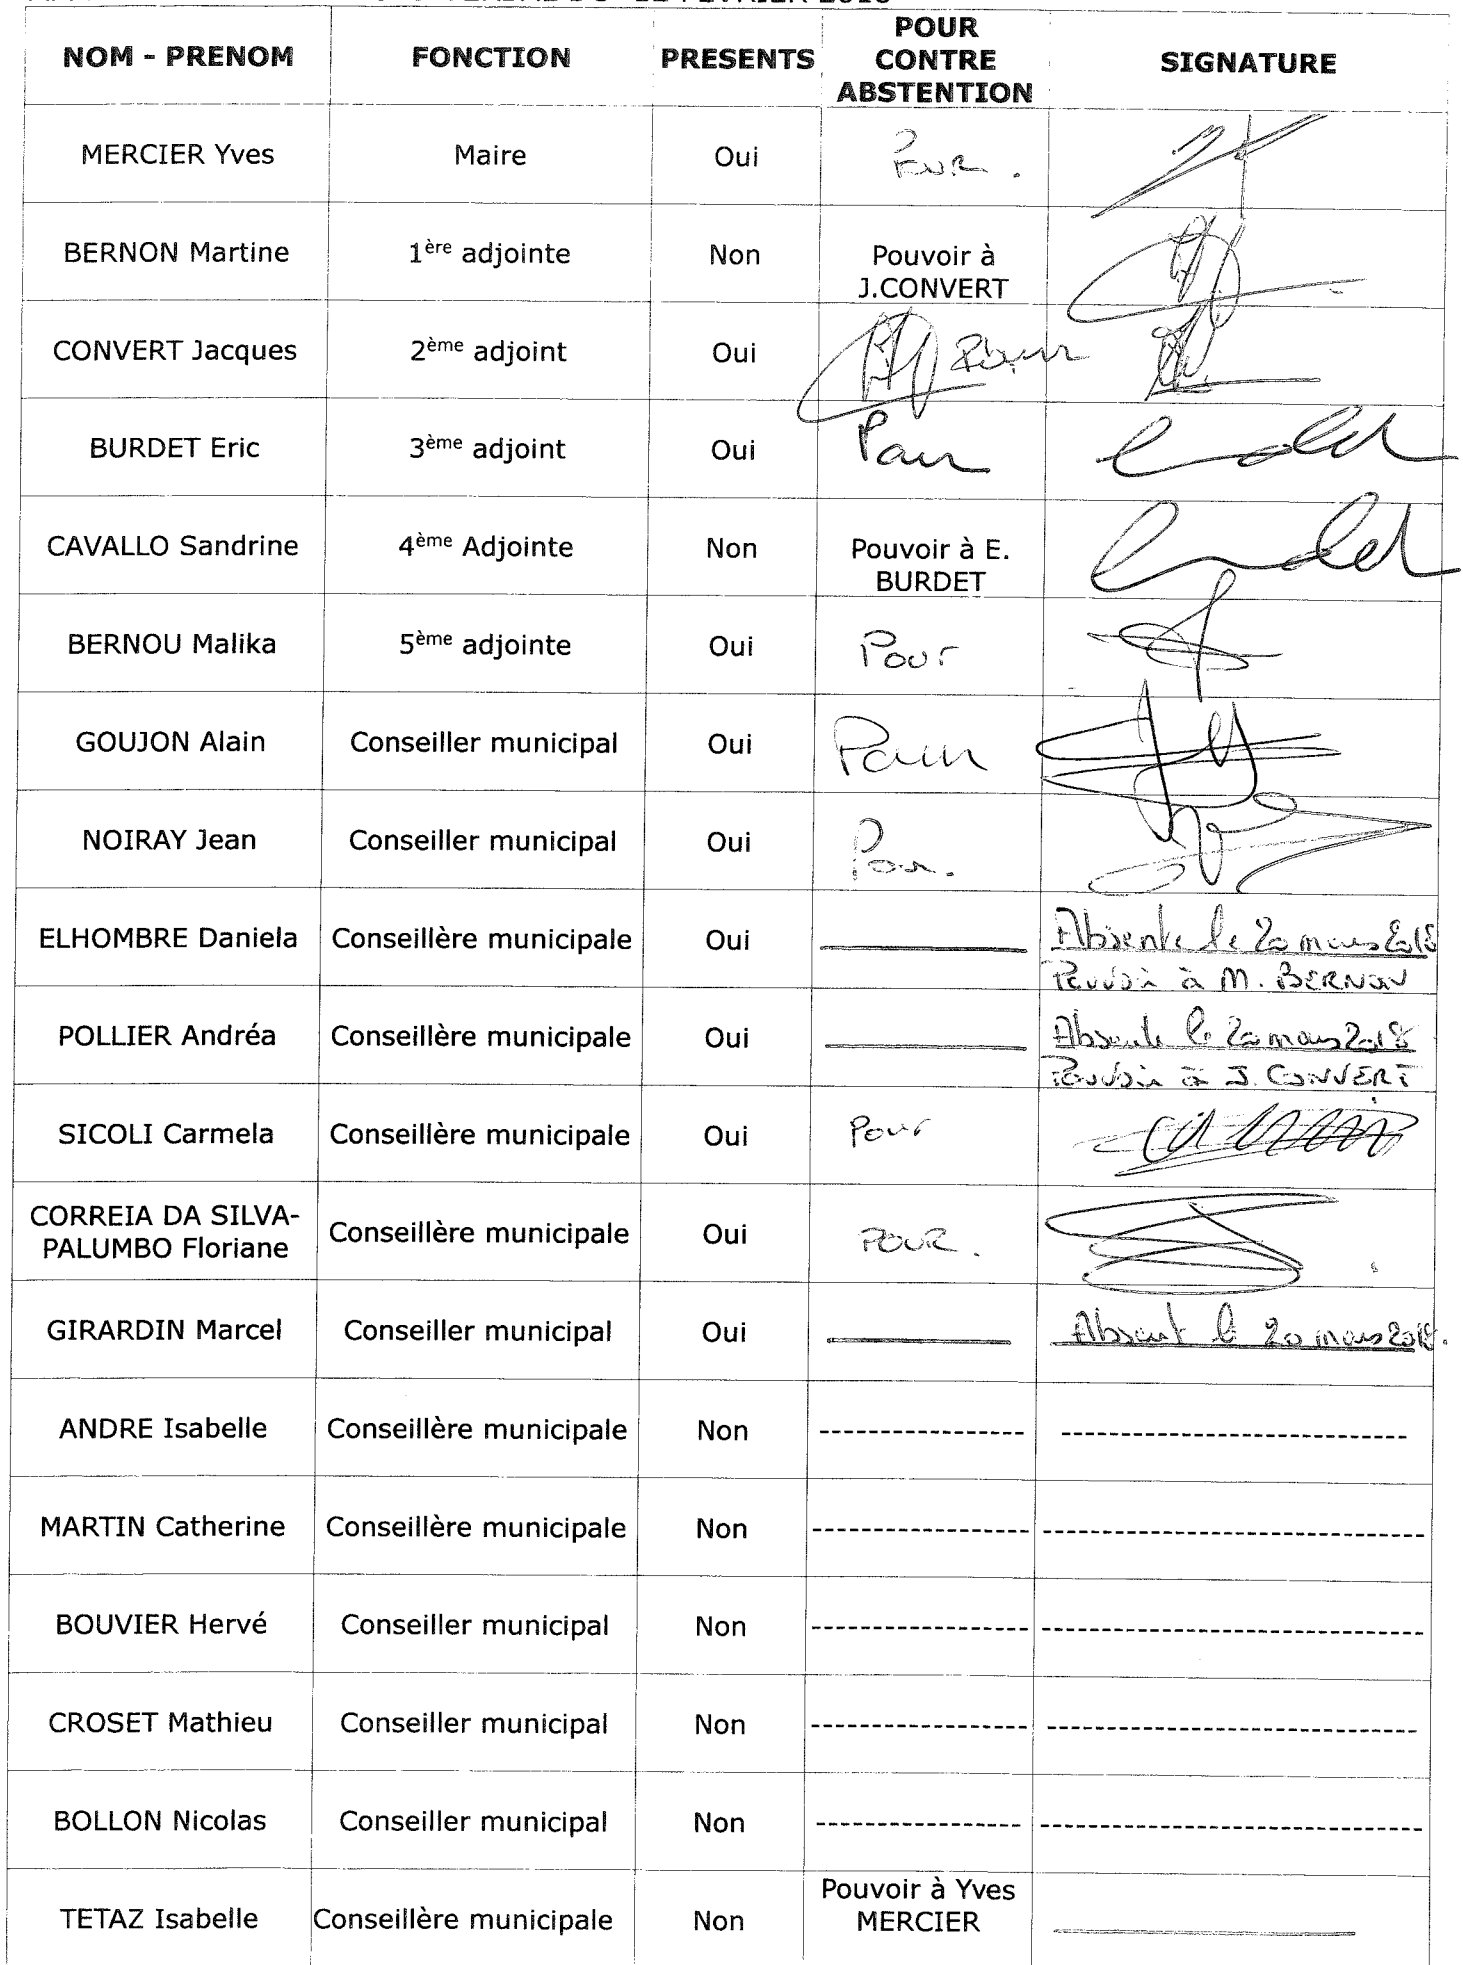 FEVRIER 2018
NOM - PRENOM FONCTION PRESENTS POUR CONTRE ABSTENTION SIGNATURE
MERCIER Yves Maire Oui Pour.
BERNON Martine 1ère adjointe Non Pouvoir à J.CONVERT
CONVERT Jacques 2ème adjoint Oui Pour
BURDET Eric 3ème adjoint Oui Pour
CAVALLO Sandrine 4ème Adjointe Non Pouvoir à E. BURDET
BERNOU Malika 5ème adjointe Oui Pour
GOUJON Alain Conseiller municipal Oui Pour
NOIRAY Jean Conseiller municipal Oui Pour.
ELHOMBRE Daniela Conseillère municipale Oui Absente le 20 mars 2018
Pouvoir à M. BERNON
POLLIER Andréa Conseillère municipale Oui Absente le 20 mars 2018
Pouvoir à J. CONVERT
SICOLI Carmela Conseillère municipale Oui Pour
CORREIA DA SILVA-
PALUMBO Floriane Conseillère municipale Oui POUR.
GIRARDIN Marcel Conseiller municipal Oui Absent le 20 mars 2018.
ANDRE Isabelle Conseillère municipale Non
MARTIN Catherine Conseillère municipale Non
BOUVIER Hervé Conseiller municipal Non
CROSET Mathieu Conseiller municipal Non
BOLLON Nicolas Conseiller municipal Non
TETAZ Isabelle Conseillère municipale Non Pouvoir à Yves MERCIER